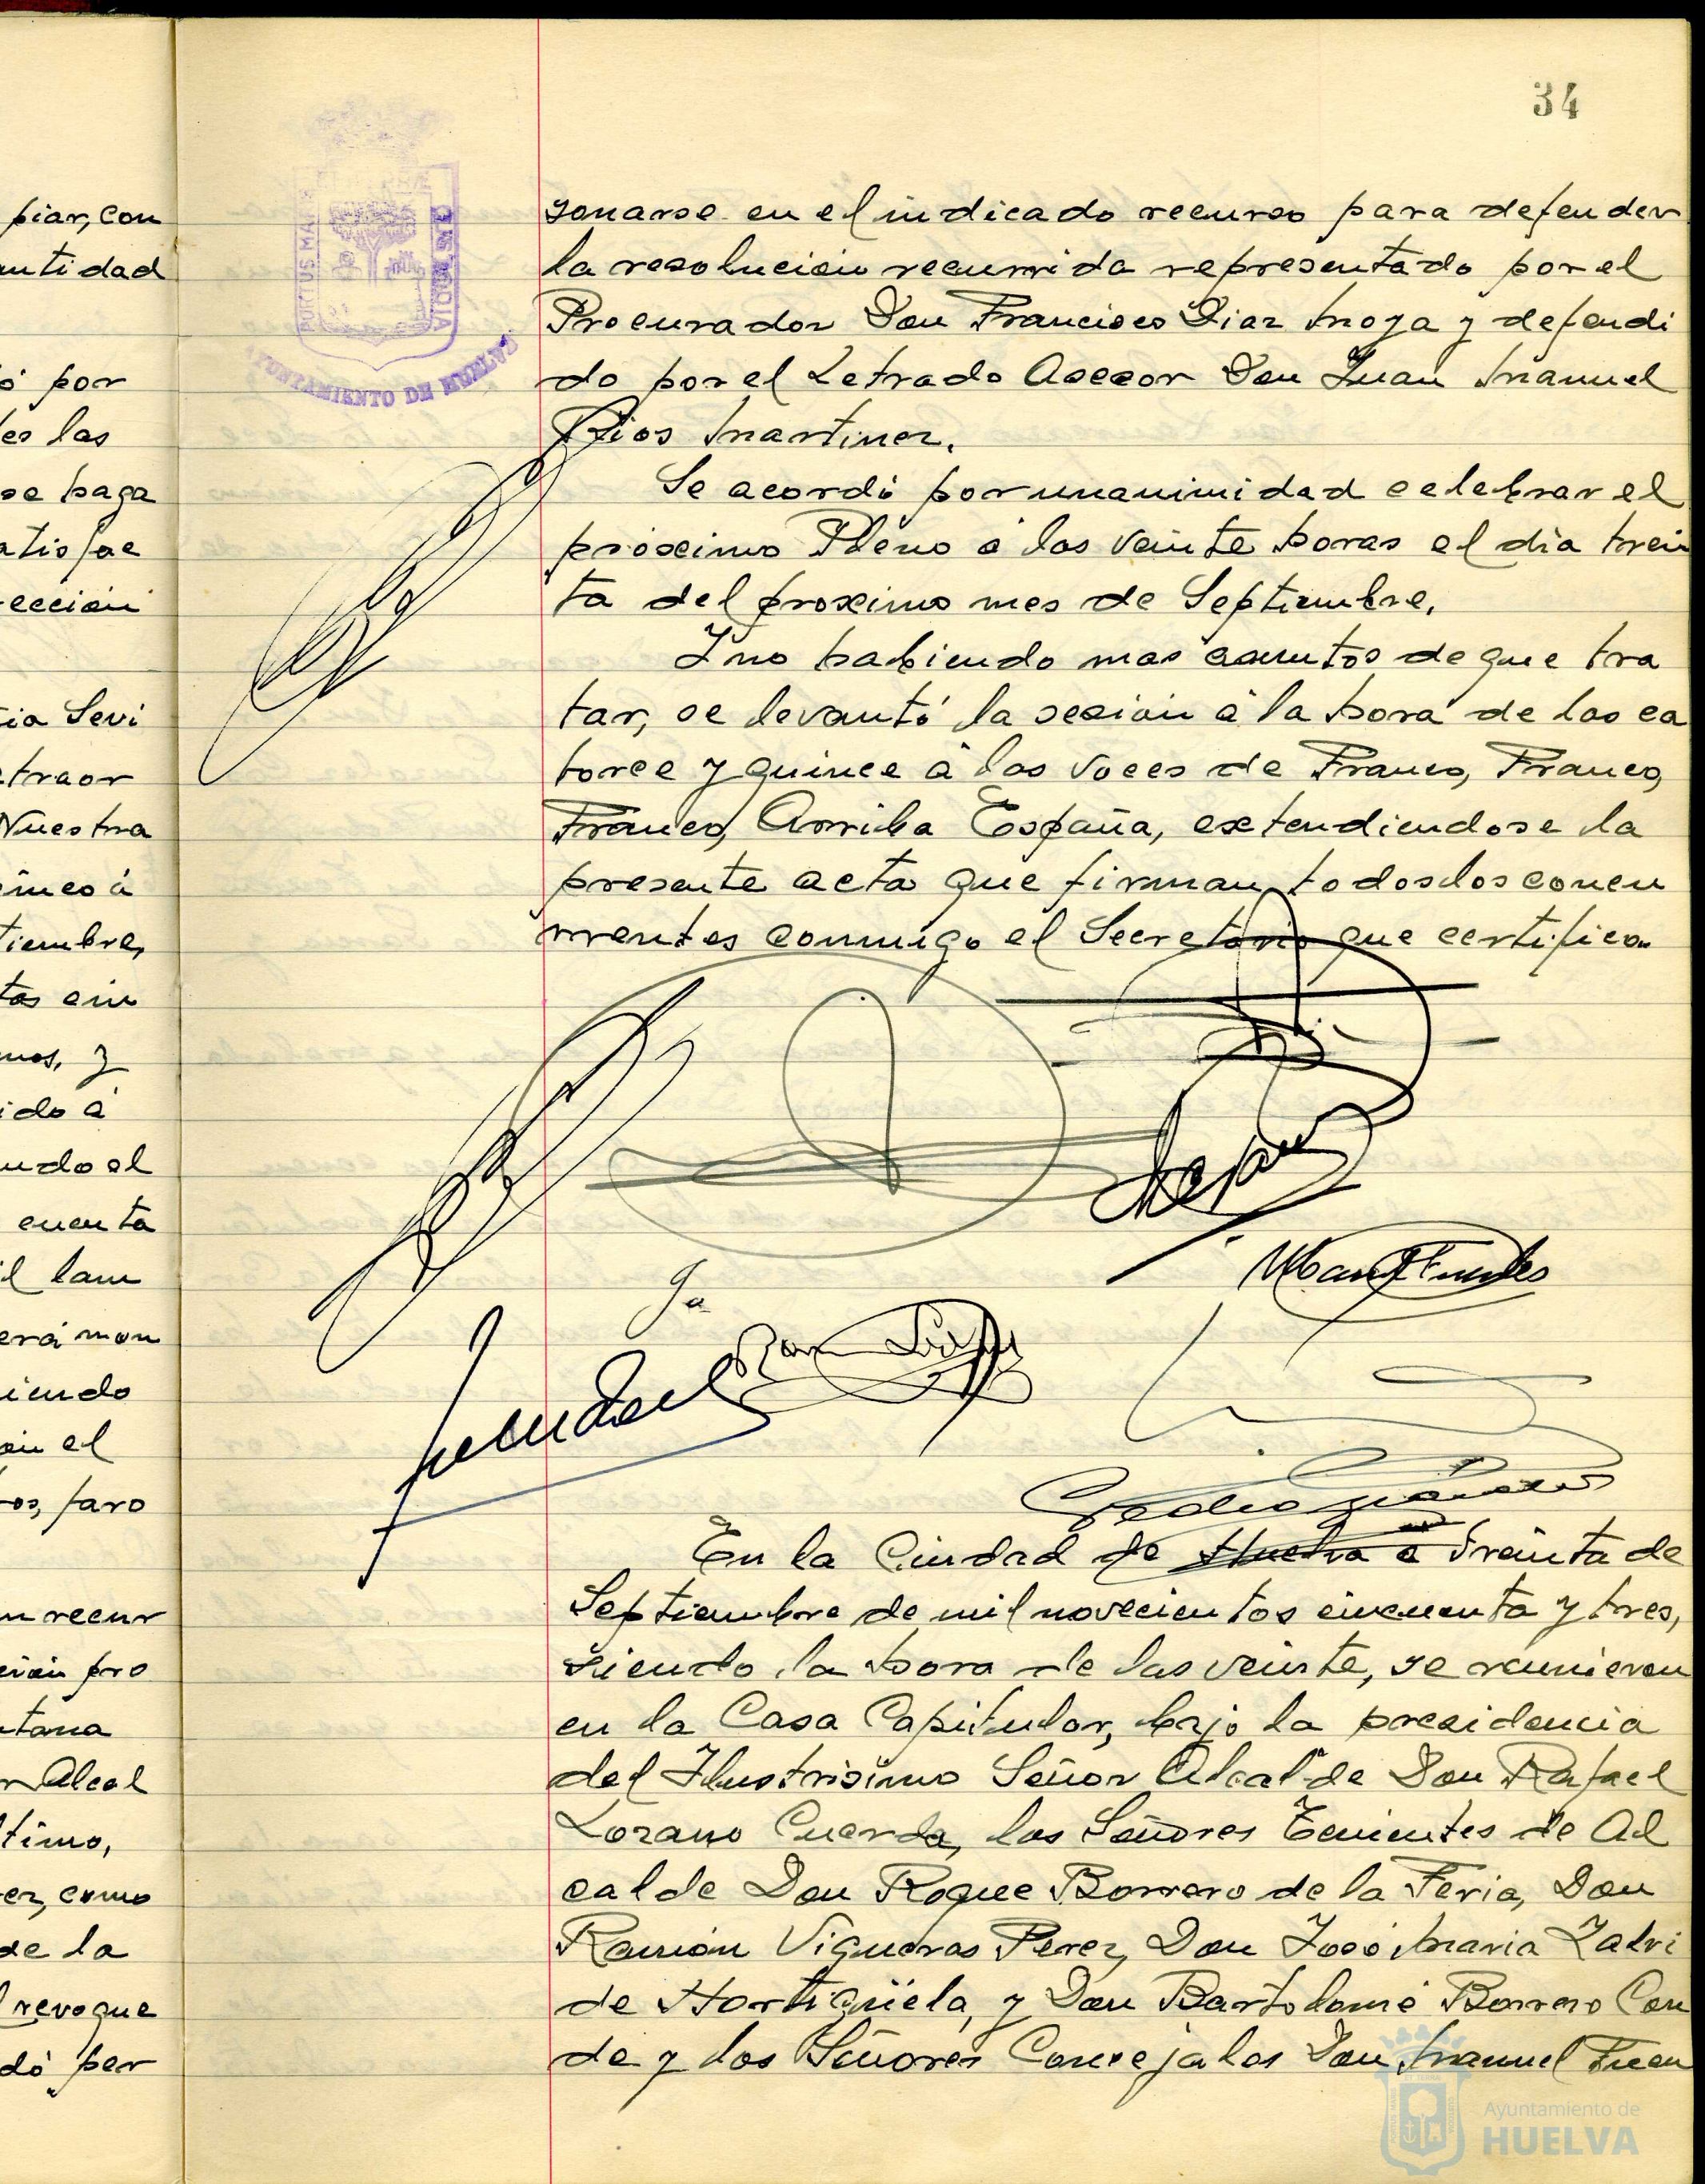 34
piar, con
antidad
ó por
es las
se haga
atisfac
ección
cia Sevi
traor
Nuestra
inco á
tiembre,
tos cin
mos, y
ido á
ndo el
cuenta
il lam
erá mon
iendo
ón el
os, faro
un recur
ción pro
tana
r Alcal
ltimo,
ez, como
de la
revoque
dó per
PORTUS MARIS
ET TERRAE CUSTODIA
AYUNTAMIENTO DE HUELVA
sonarse en el indicado recurso para defender
la resolucion recurrida representado por el
Procurador Don Francisco Diaz Moya y defendi
do por el Letrado Asesor Don Juan Manuel
Rios Martinez.
Se acordó por unanimidad celebrar el
próximo Pleno á las veinte horas el dia trein
ta del proximo mes de Septiembre.
Y no habiendo mas asuntos de que tra
tar, se levantó la sesión á la hora de las ca
torce y quince á las voces de Franco, Franco,
Franco, Arriba España, extendiendose la
presente acta que firman todos los concu
rrentes conmigo el Secretario que certifico.
En la Ciudad de Huelva á treinta de
Septiembre de mil novecientos cincuenta y tres,
siendo la hora de las veinte, se reunieron
en la Casa Capitular, bajo la presidencia
del Ilustrisimo Señor Alcalde Don Rafael
Lozano Cuerda, los Señores Tenientes de Al
calde Don Roque Borrero de la Feria, Don
Ramón Vigueras Perez, Don José Maria Zalvi
de Hortigüela, y Don Bartolomé Borrero Con
de y los Señores Concejales Don Manuel Fuen
Ayuntamiento de
HUELVA